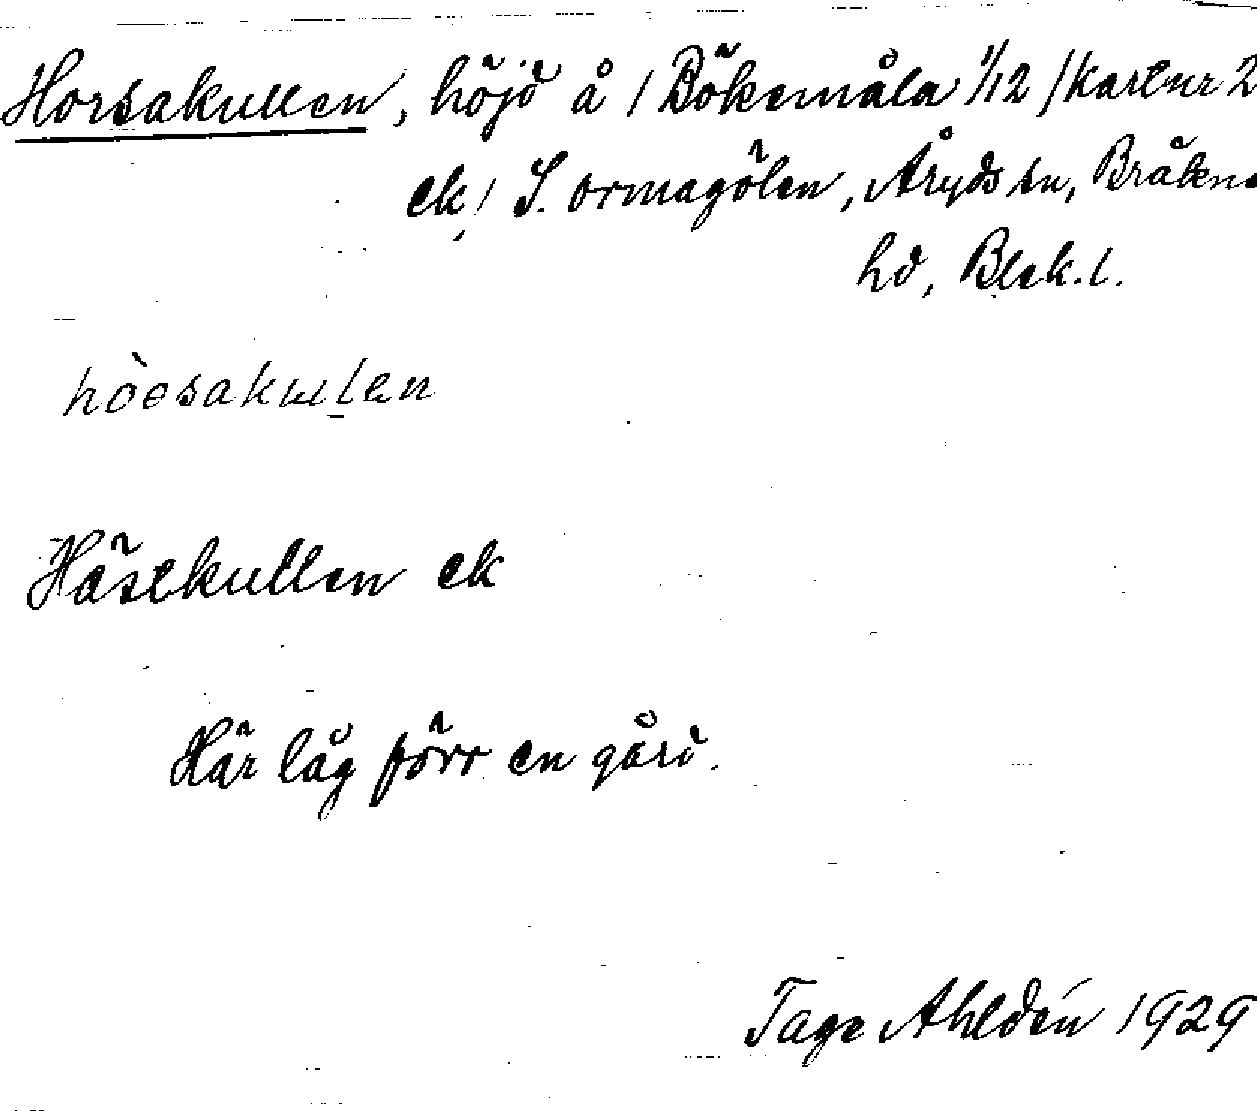 Horsakullen, höjd å / Bökemåla 1/12 / kartnr 2
ek / S. ormagölen, Åryds sn, Bräkne
hd, Blek. l.
hòesakulen
Hästkullen ek
Här låg förr en gård.
Tage Ahldén 1929